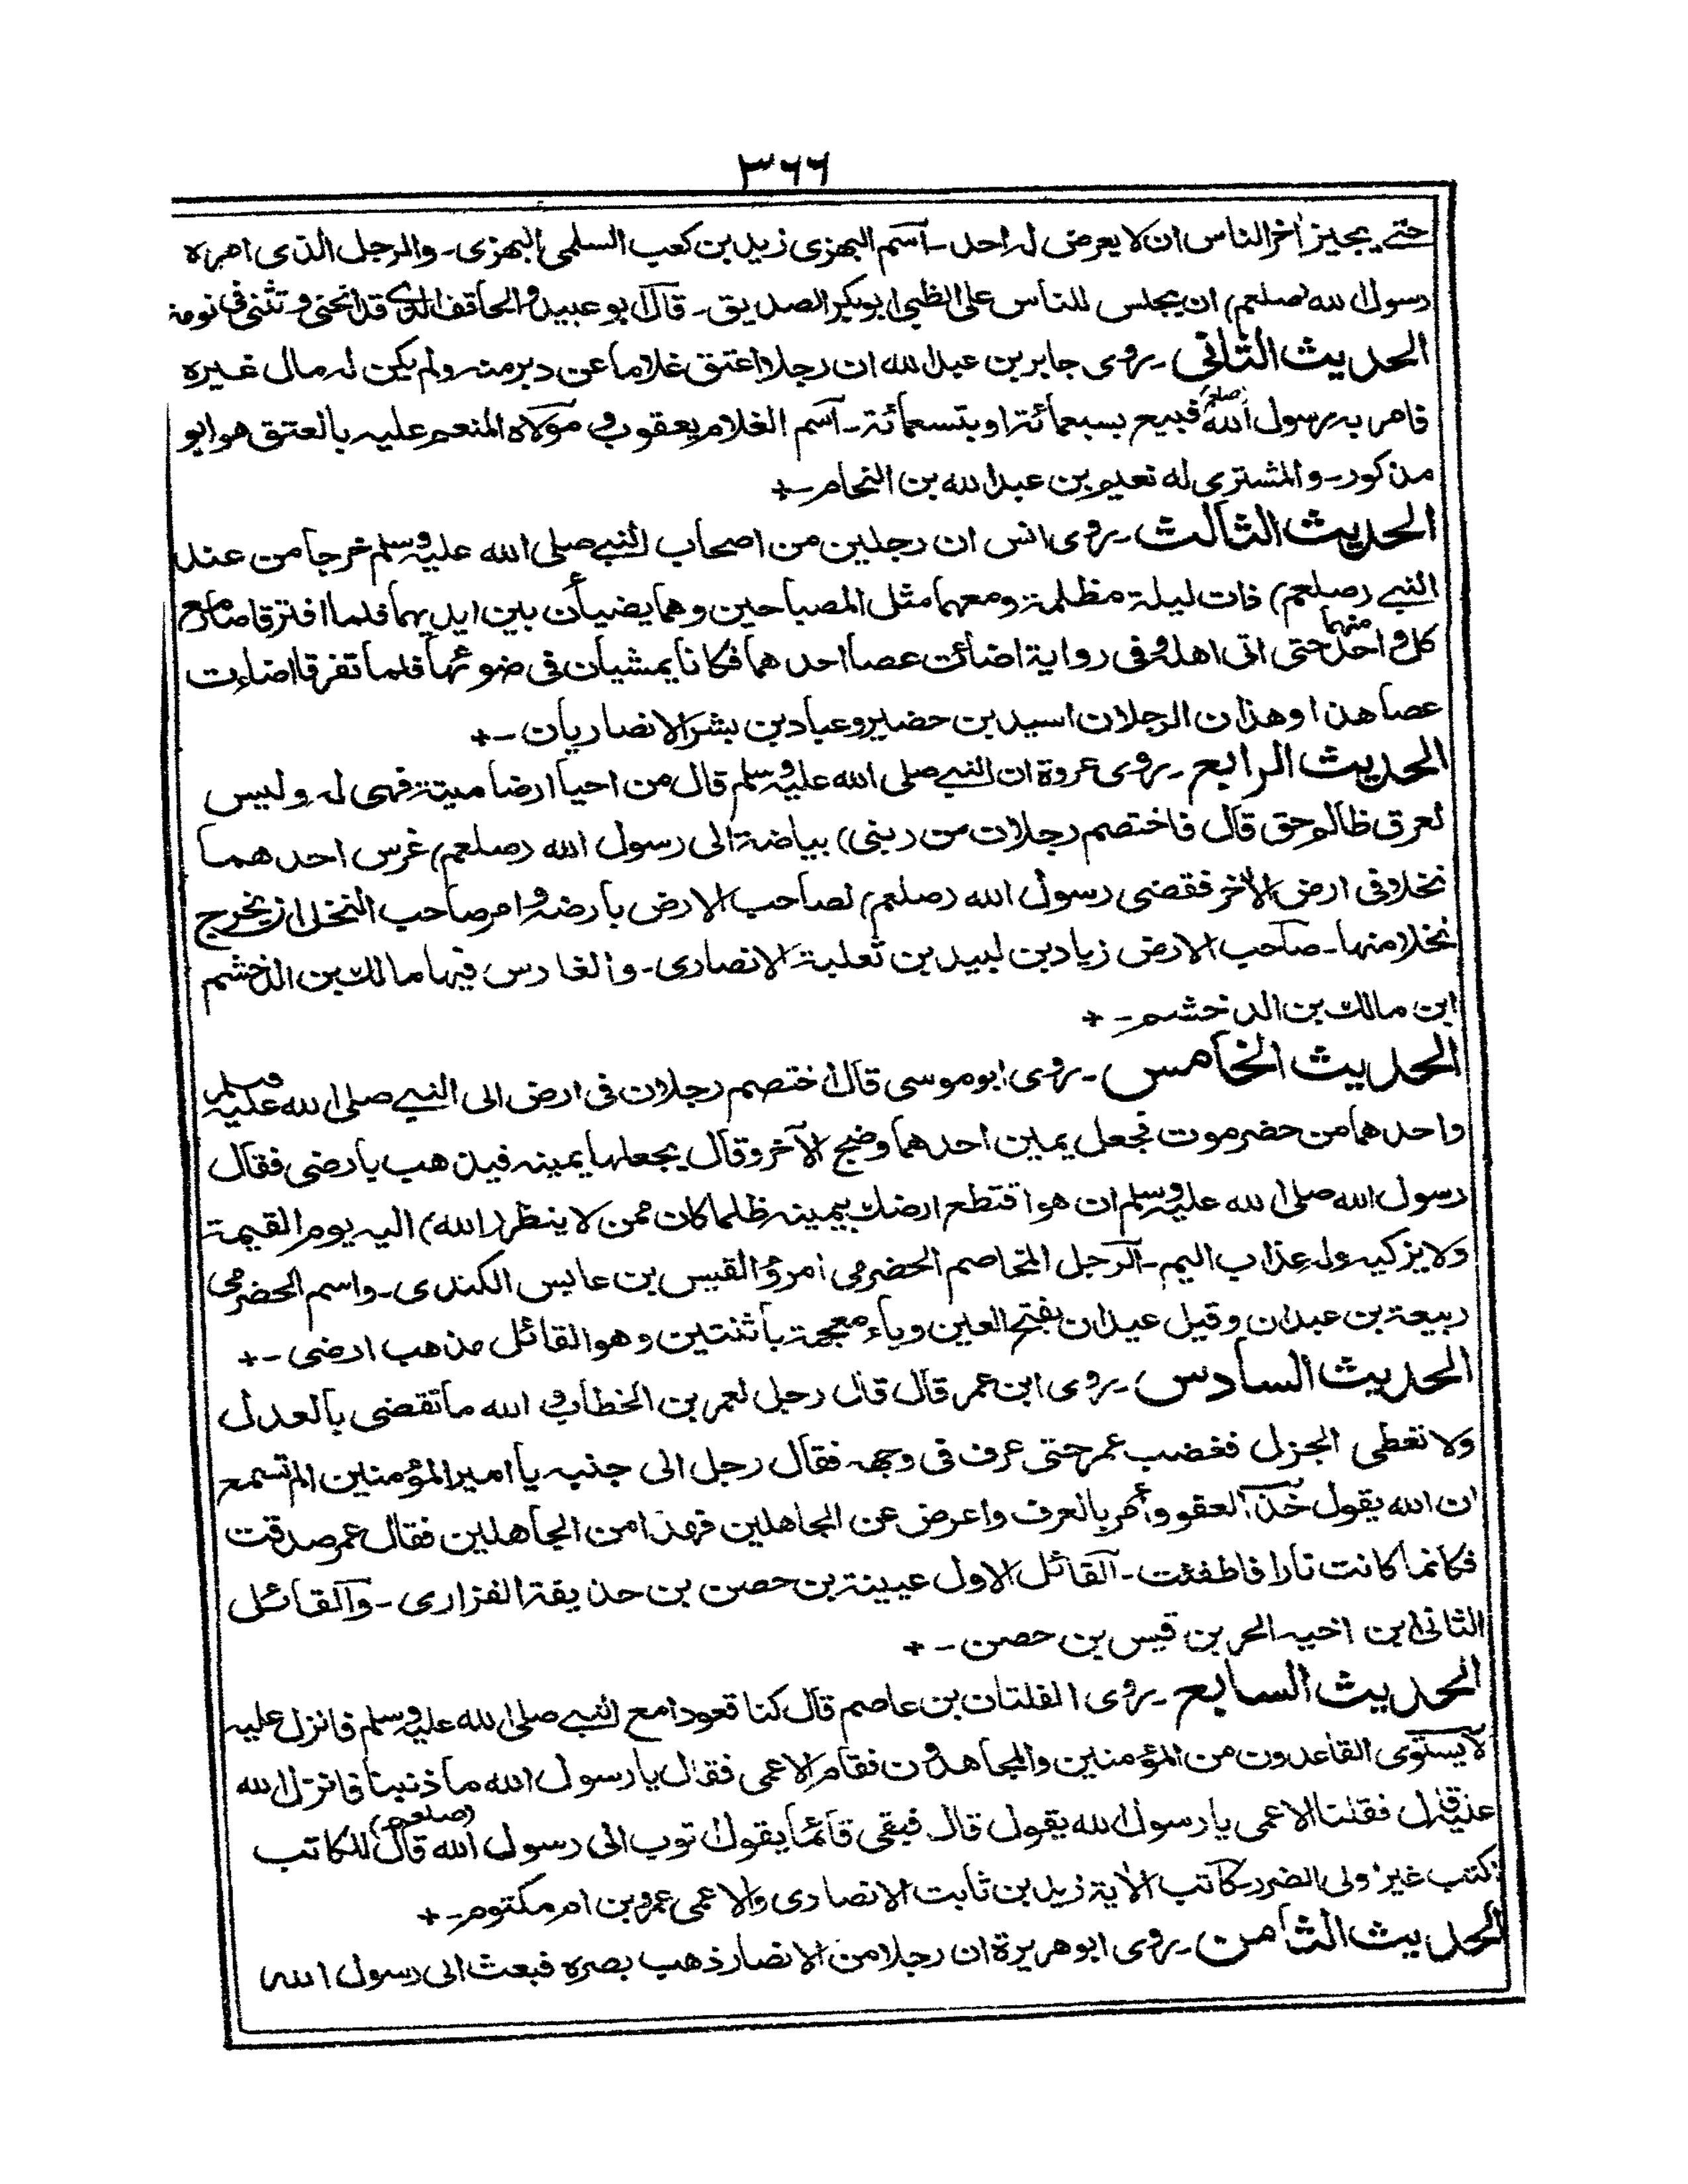 ٣٦٦
حتے یجیز اٰخر الناس ان لا یعرض لہ احد ـ اسم البهزی زید بن کعب السلمی البهزی ـ والرجل الذی امرہ
رسول اللہ (صلعم) ان یجلس للناس علی الظبی ابو بکر الصدیق ـ قال ابو عبید والحاقف الذی قد انحنی و تثنی فی نومہ
الحدیث الثانی ـ روی جابر بن عبد اللہ ان رجلا اعتق غلاما عن دبر منہ ولم یکن لہ مال غیرہ
فامر بہ رسول اللہ صلعم فبیع بسبعمائة او بتسعمائة ـ اسم الغلام یعقوب و مولاہ المنعم علیہ بالعتق هو ابو
مذکور ـ والمشتری له نعیم بن عبد اللہ بن النحام ـ+
الحدیث الثالث ـ روی انس ان رجلین من اصحاب النبے صلی اللہ علیہ وسلم خرجا من عند
النبے (صلعم) ذات لیلة مظلمة ومعهما مثل المصباحین وهما یضیأن بین ایدیهما فلما افترقا صار مع
کل واحد منهما حتی اتی اهله وفی روایة اضائت عصا احدهما فکانا یمشیان فی ضوئها فلما تفرقا اضاءت
عصا هذا وهذان الرجلان اسید بن حضیر وعباد بن بشر الانصاریان ـ+
الحدیث الرابع ـ روی عروة ان النبے صلی اللہ علیہ وسلم قال من احیا ارضا میتة فهی لہ ولیس
لعرق ظالم حق قال فاختصم رجلان من (بنی) بیاضة الی رسول اللہ (صلعم) غرس احدهما
نخلا فی ارض الاٰخر فقضی رسول اللہ (صلعم) لصاحب الارض بارضہ وامر صاحب النخل ان یخرج
نخلا منها ـ صاحب الارض زیاد بن لبید بن ثعلبة الانصاری ـ والغارس فیها مالك بن الدخشم
ابن مالك بن الدخشم ـ+
الحدیث الخامس ـ روی ابو موسی قال اختصم رجلان فی ارض الی النبے صلی اللہ علیہ وسلم
واحدهما من حضرموت فجعل یمین احدهما وضج الآخر وقال یجعلها یمینہ فیذهب بارضی فقال
رسول اللہ صلی اللہ علیہ وسلم ان هو اقتطع ارضك بیمینہ ظلما کان ممن لا ینظر (اللہ) الیہ یوم القیمة
ولا یزکیہ ولہ عذاب الیم ـ الرجل المخاصم الحضرمی امرؤ القیس بن عابس الکندی ـ واسم الحضرمی
ربیعة بن عبدان وقیل عیدان بفتح العین ویاء معجمة باثنتین وهو القائل مذهب ارضی ـ+
الحدیث السادس ـ روی ابن عمر قال قال رجل لعمر بن الخطاب و اللہ ما تقضی بالعدل
ولا تعطی الجزل فغضب عمر حتی عرف فی وجهہ فقال رجل الی جنبہ یا امیر المؤمنین الم تسمع
ان اللہ یقول خذ العفو وأمر بالعرف واعرض عن الجاهلین فهذا من الجاهلین فقال عمر صدقت
فکانما کانت نارا فاطفئت ـ القائل الاول عیینة بن حصن بن حذیفة الفزاری ـ والقائل
الثانی ابن اخیہ الحر بن قیس بن حصن ـ+
الحدیث السابع ـ روی الفلتان بن عاصم قال کنا قعودا مع النبے صلی اللہ علیہ وسلم فانزل علیہ
لا یستوی القاعدون من المؤمنین والمجاهدون فقام الاعمی فقال یا رسول اللہ ما ذنبنا فانزل اللہ
فقلنا الاعمی یا رسول اللہ یقول قال فبقی قائما یقول اتوب الی رسول اللہ (صلعم) قال للکاتب
اکتب غیر اولی الضرر ـ کاتب الاٰیة زید بن ثابت الانصاری والاعمی عمرو بن ام مکتوم ـ+
الحدیث الثامن ـ روی ابو هریرة ان رجلا من الانصار ذهب بصرہ فبعث الی رسول اللہ